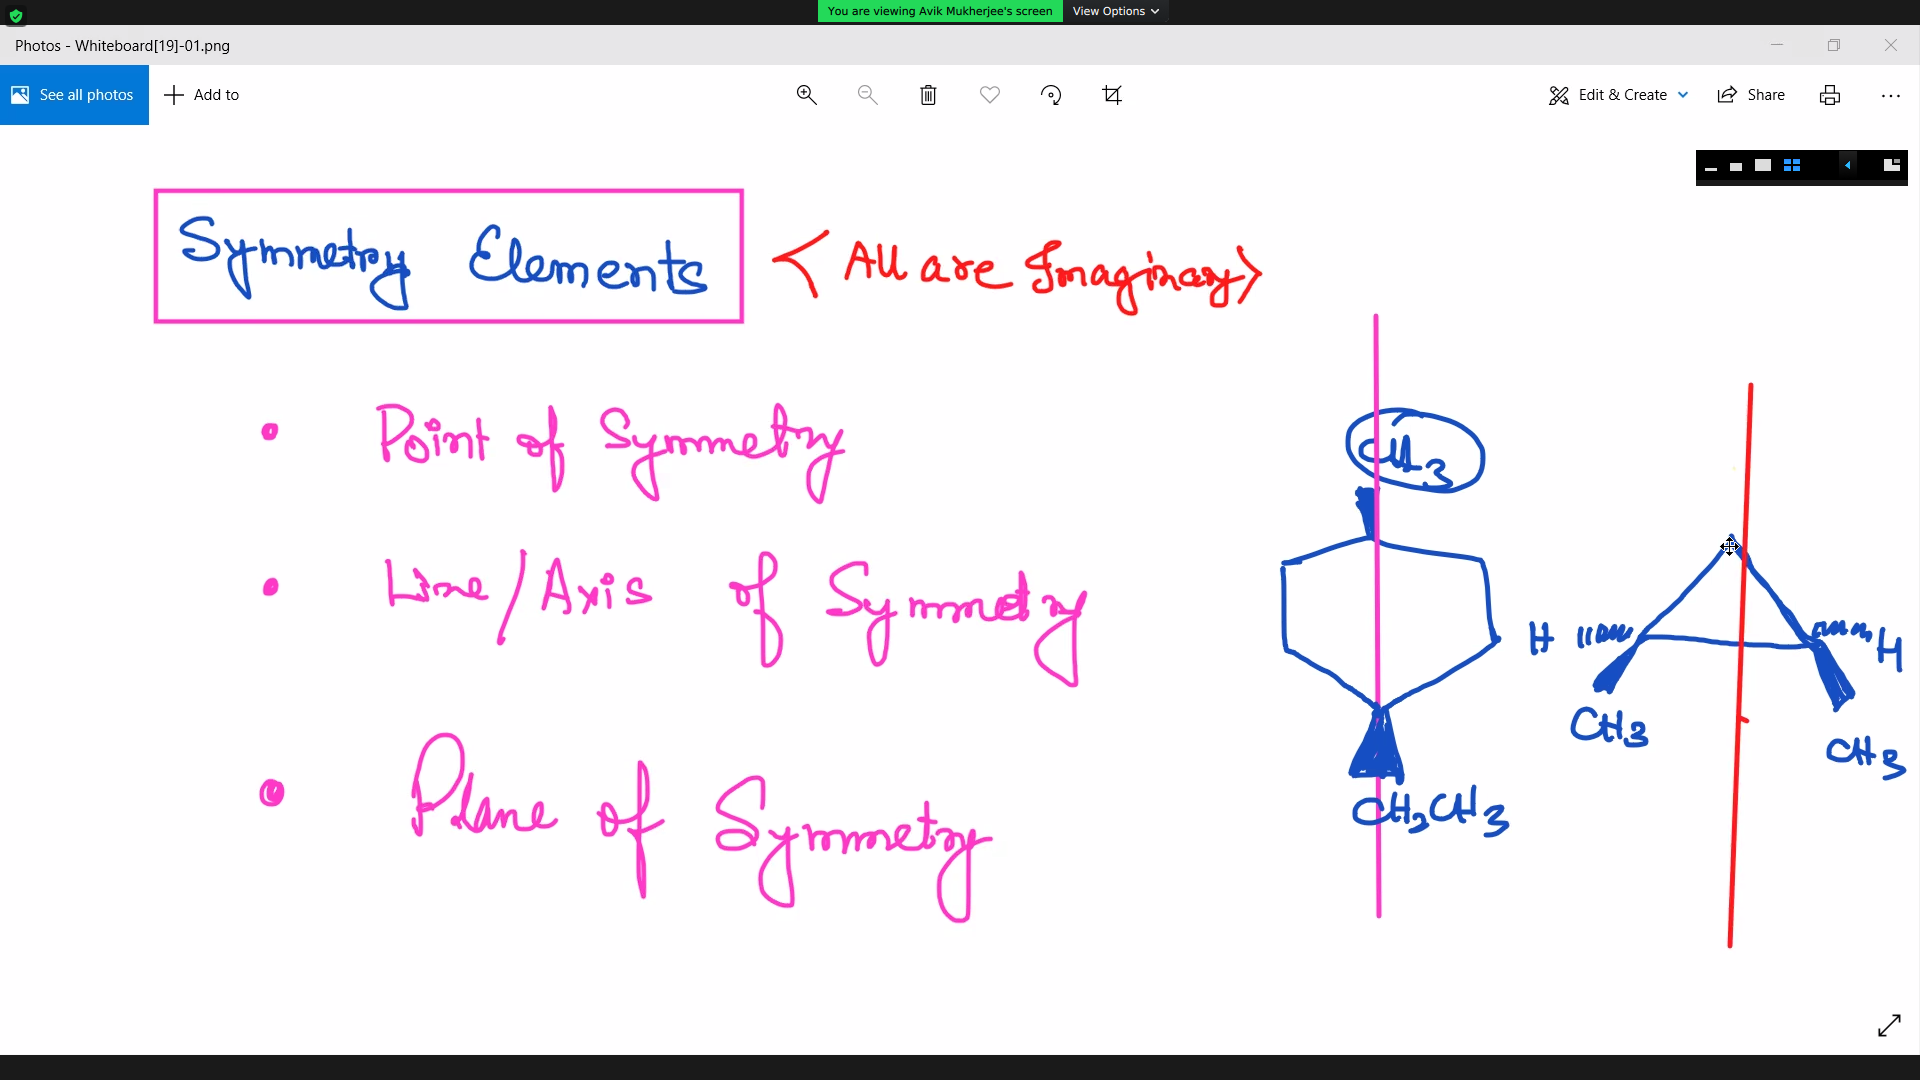 You are viewing Avik Mukherjee's screen View Options
Photos - Whiteboard[19]-01.png
See all photos Add to Edit & Create Share
Symmetry Elements < All are Imaginary >
Point of Symmetry
Line/Axis of Symmetry
Plane of Symmetry
CH3
H H
CH3 CH3
CH2CH3